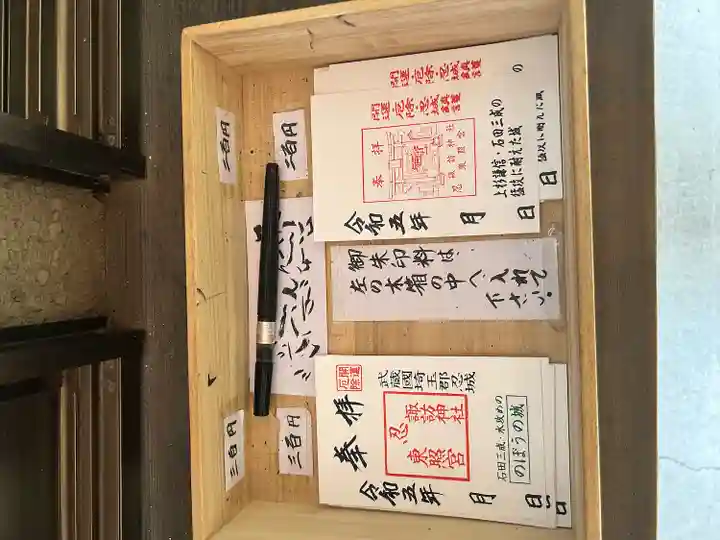 二百円
二百円
開運・厄除・忍城
開運・厄除・忍城
奉拝
忍諏訪神社
東照宮
上杉謙信・石田三成の
強攻に耐えた城
令和五年 月 日
の
強攻に耐えた城
日
御朱印料は、
左の木箱の中へ
入れて
下さい。
三百円
三百円
開運
厄除
武蔵國埼玉郡忍城
奉拝
忍
諏訪神社
東照宮
石田三成・水攻めの
のぼうの城
令和五年 月 日
日